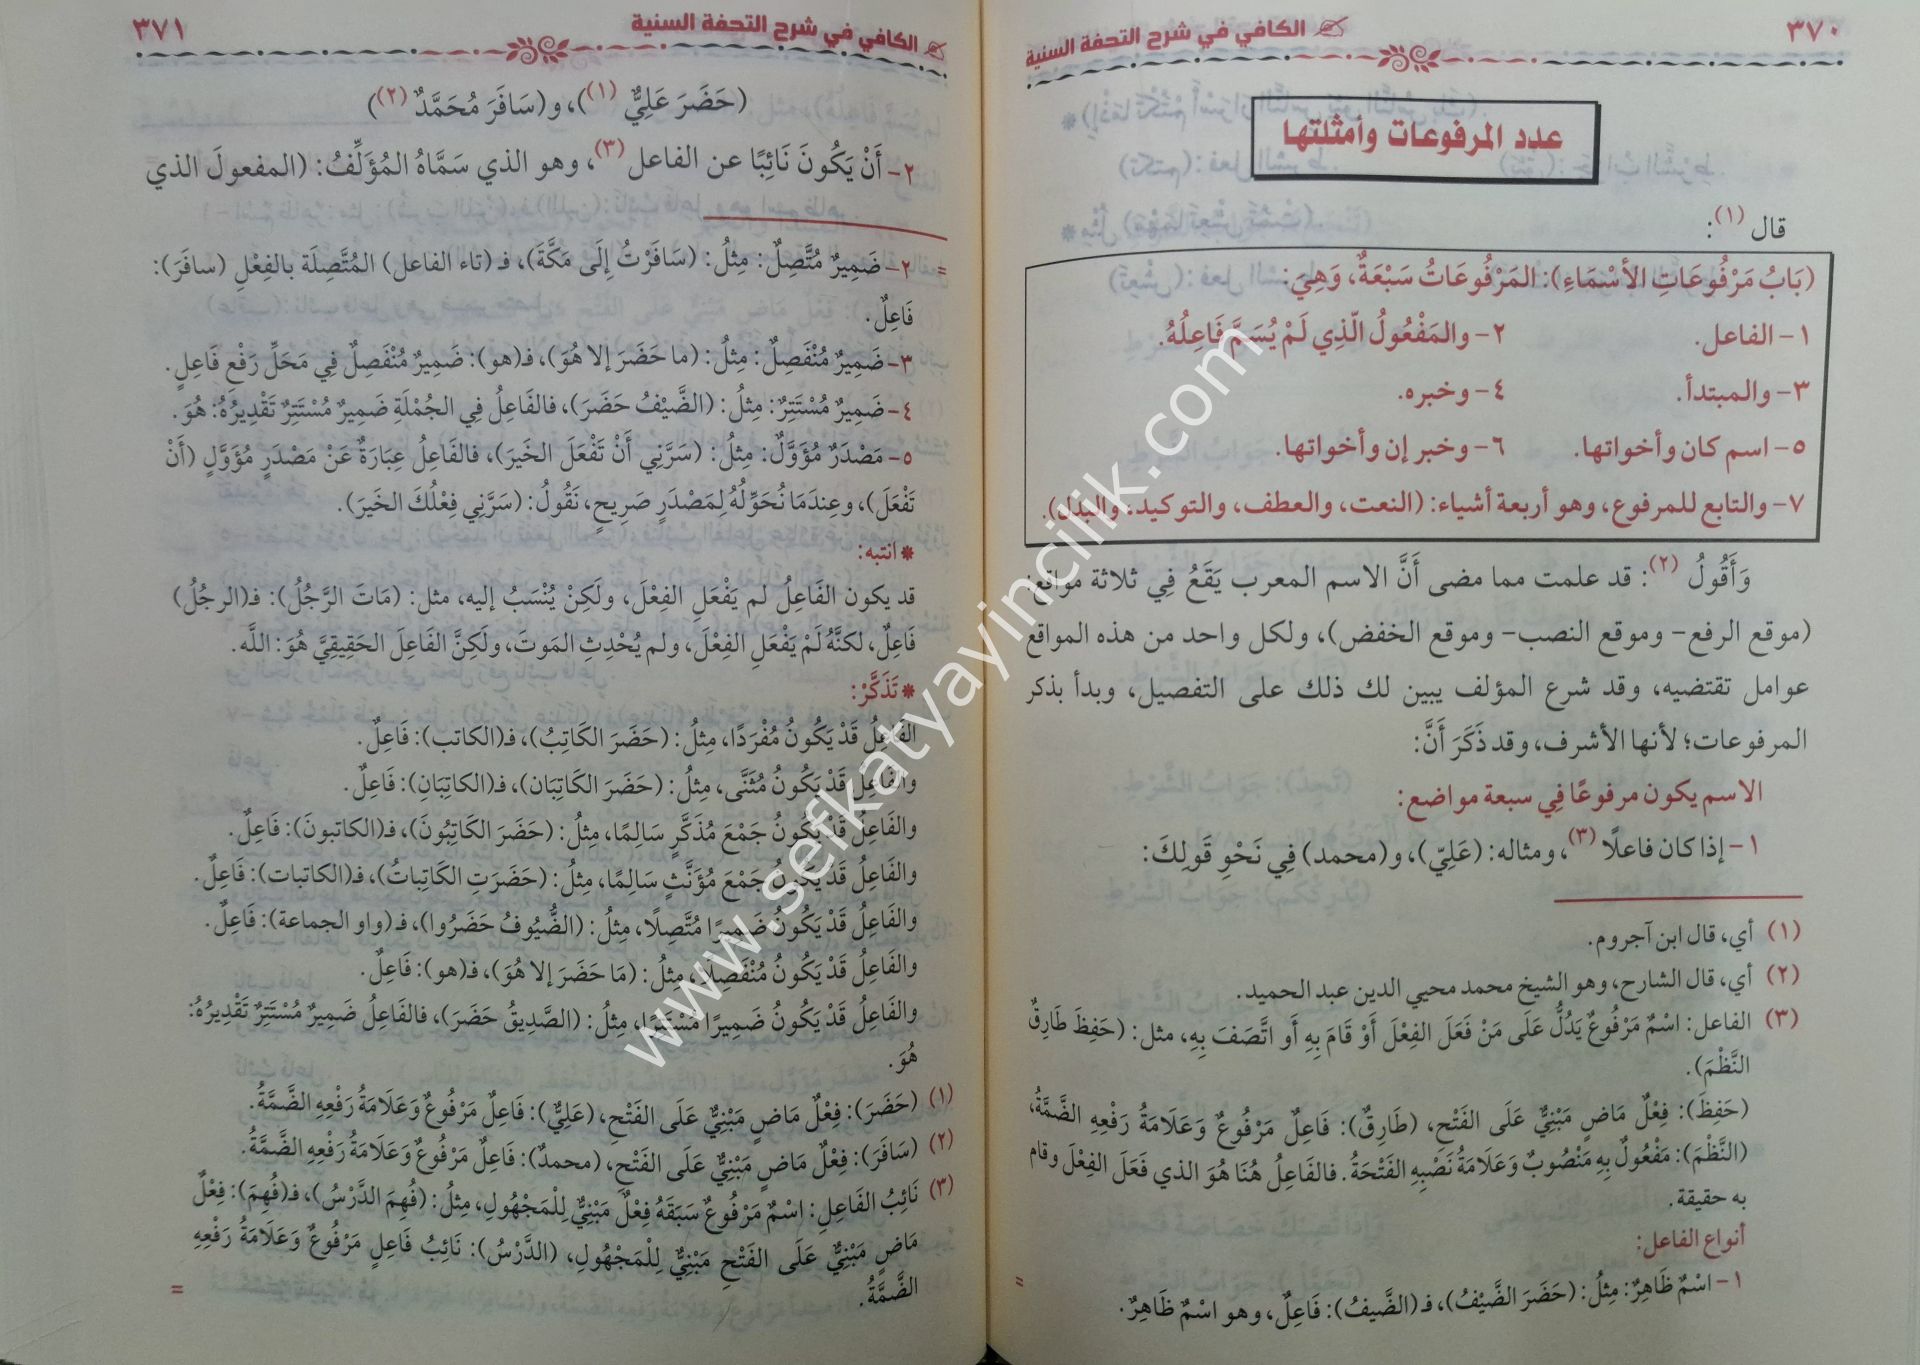 ٣٧٠
الكافي في شرح التحفة السنية
عدد المرفوعات وأمثلتها
قال (١):
(بَابُ مَرْفُوعَاتِ الأَسْمَاءِ): المَرْفُوعَاتُ سَبْعَةٌ، وَهِيَ:
١- الفاعل. ٢- والمَفْعُولُ الّذِي لَمْ يُسَمَّ فَاعِلُهُ.
٣- والمبتدأ. ٤- وخبره.
٥- اسم كان وأخواتها. ٦- وخبر إن وأخواتها.
٧- والتابع للمرفوع، وهو أربعة أشياء: (النعت، والعطف، والتوكيد، والبدل).
وَأَقُولُ (٢): قد علمت مما مضى أَنَّ الاسم المعرب يَقَعُ فِي ثلاثة مواقع:
(موقع الرفع- وموقع النصب- وموقع الخفض)، ولكل واحد من هذه المواقع
عوامل تقتضيه، وقد شرع المؤلف يبين لك ذلك على التفصيل، وبدأ بذكر
المرفوعات؛ لأنها الأشرف، وقد ذَكَرَ أَنَّ:
الاسم يكون مرفوعًا فِي سبعة مواضع:
١- إذا كان فاعلًا (٣)، ومثاله: (عَلِيّ)، و(محمد) فِي نَحْوِ قَولِكَ:
(١) أي، قال ابن آجروم.
(٢) أي، قال الشارح، وهو الشيخ محمد محيي الدين عبد الحميد.
(٣) الفاعل: اسْمٌ مَرْفُوعٌ يَدُلُّ عَلَى مَنْ فَعَلَ الفِعْلَ أَوْ قَامَ بِهِ أَو اتَّصَفَ بِهِ، مثل: (حَفِظَ طَارِقٌ
النَّظْمَ).
(حَفِظَ): فِعْلٌ مَاضٍ مَبْنِيٌّ عَلَى الفَتْحِ، (طَارِقٌ): فَاعِلٌ مَرْفُوعٌ وَعَلَامَةُ رَفْعِهِ الضَّمَّةُ،
(النَّظْمَ): مَفْعُولٌ بِهِ مَنْصُوبٌ وَعَلَامَةُ نَصْبِهِ الفَتْحَةُ. فالفَاعِلُ هُنَا هُوَ الذي فَعَلَ الفِعْلَ وقام
به حقيقة.
أنواع الفاعل:
١- اسْمٌ ظَاهِرٌ: مِثلُ: (حَضَرَ الضَّيْفُ)، فـ(الضَّيفُ): فَاعِلٌ، وهو اسْمٌ ظَاهِرٌ.
=
الكافي في شرح التحفة السنية
٣٧١
(حَضَرَ عَلِيٌّ (١))، و(سَافَرَ مُحَمَّدٌ (٢))
٢- أَنْ يَكُونَ نَائِبًا عن الفاعل (٣)، وهو الذي سَمَّاهُ المُؤَلِّفُ: (المفعولَ الذي
= ٢- ضَمِيرٌ مُتَّصِلٌ: مِثلُ: (سَافَرْتُ إِلَى مَكَّةَ)، فـ (تاء الفاعل) المُتَّصِلَة بالفِعْلِ (سافَرَ):
فَاعِلٌ.
٣- ضَمِيرٌ مُنْفَصِلٌ: مِثلُ: (ما حَضَرَ إلا هُوَ)، فـ(هو): ضَمِيرٌ مُنْفَصِلٌ فِي مَحَلِّ رَفْعِ فَاعِلٍ.
٤- ضَمِيرٌ مُسْتَتِرٌ: مِثلُ: (الضَّيْفُ حَضَرَ)، فالفَاعِلُ فِي الجُمْلَةِ ضَمِيرٌ مُسْتَتِرٌ تَقْدِيرُهُ: هُوَ.
٥- مَصْدَرٌ مُؤَوَّلٌ: مِثلُ: (سَرَّنِي أَنْ تَفْعَلَ الخَيرَ)، فالفَاعِلُ عِبَارَةٌ عَنْ مَصْدَرٍ مُؤَوَّلٍ (أَنْ
تَفْعَلَ)، وعِندَمَا نُحَوِّلُهُ لِمَصْدَرٍ صَرِيحٍ، نَقُولُ: (سَرَّنِي فِعْلُكَ الخَيَرَ).
* انتبه:
قد يكون الفَاعِلُ لم يَفْعَلِ الفِعْلَ، ولَكِنْ يُنْسَبُ إليه، مثل: (مَاتَ الرَّجُلُ): فـ(الرجُلُ)
فَاعِلٌ، لكنَّهُ لَمْ يَفْعَلِ الفِعْلَ، ولم يُحْدِثِ المَوتَ، ولَكِنَّ الفَاعِلَ الحَقِيقِيَّ هُوَ: اللَّه.
* تَذَكَّرْ:
الفَاعِلُ قَدْ يَكُونُ مُفْرَدًا، مِثلُ: (حَضَرَ الكَاتِبُ)، فـ(الكاتب): فَاعِلٌ.
والفَاعِلُ قَدْ يَكُونُ مُثَنَّى، مِثلُ: (حَضَرَ الكَاتِبَانِ)، فـ(الكاتِبَانِ): فَاعِلٌ.
والفَاعِلُ قَدْ يَكُونُ جَمْعَ مُذَكَّرٍ سَالِمًا، مِثلُ: (حَضَرَ الكَاتِبُونَ)، فـ(الكاتبونَ): فَاعِلٌ.
والفَاعِلُ قَدْ يَكُونُ جَمْعَ مُؤَنَّثٍ سَالِمًا، مِثلُ: (حَضَرَتِ الكَاتِبَاتُ)، فـ(الكاتبات): فَاعِلٌ.
والفَاعِلُ قَدْ يَكُونُ ضَمِيرًا مُتَّصِلًا، مِثلُ: (الضُّيُوفُ حَضَرُوا)، فـ(واو الجماعة): فَاعِلٌ.
والفَاعِلُ قَدْ يَكُونُ مُنْفَصِلًا، مِثلُ: (مَا حَضَرَ إلا هُوَ)، فـ(هو): فَاعِلٌ.
والفَاعِلُ قَدْ يَكُونُ ضَمِيرًا مُسْتَتِرًا، مِثلُ: (الصَّدِيقُ حَضَرَ)، فالفَاعِلُ ضَمِيرٌ مُسْتَتِرٌ تَقْدِيرُهُ:
هُوَ.
(١) (حَضَرَ): فِعْلٌ مَاضٍ مَبْنِيٌّ عَلَى الفَتْحِ، (عَلِيٌّ): فَاعِلٌ مَرْفُوعٌ وَعَلَامَةُ رَفْعِهِ الضَّمَّةُ.
(٢) (سَافَرَ): فِعْلٌ مَاضٍ مَبْنِيٌّ عَلَى الفَتْحِ، (محمدٌ): فَاعِلٌ مَرْفُوعٌ وَعَلَامَةُ رَفْعِهِ الضَّمَّةُ.
(٣) نَائِبُ الفَاعِلِ: اسْمٌ مَرْفُوعٌ سَبَقَهُ فِعْلٌ مَبْنِيٌّ لِلْمَجْهُولِ، مِثلُ: (فُهِمَ الدَّرْسُ)، فـ(فُهِمَ): فِعْلٌ
مَاضٍ مَبْنِيٌّ عَلَى الفَتْحِ مَبْنِيٌّ لِلْمَجْهُولِ، (الدَّرْسُ): نَائِبُ فَاعِلٍ مَرْفُوعٌ وَعَلَامَةُ رَفْعِهِ
الضَّمَّةُ.
=
www.sefkatyayincilik.com